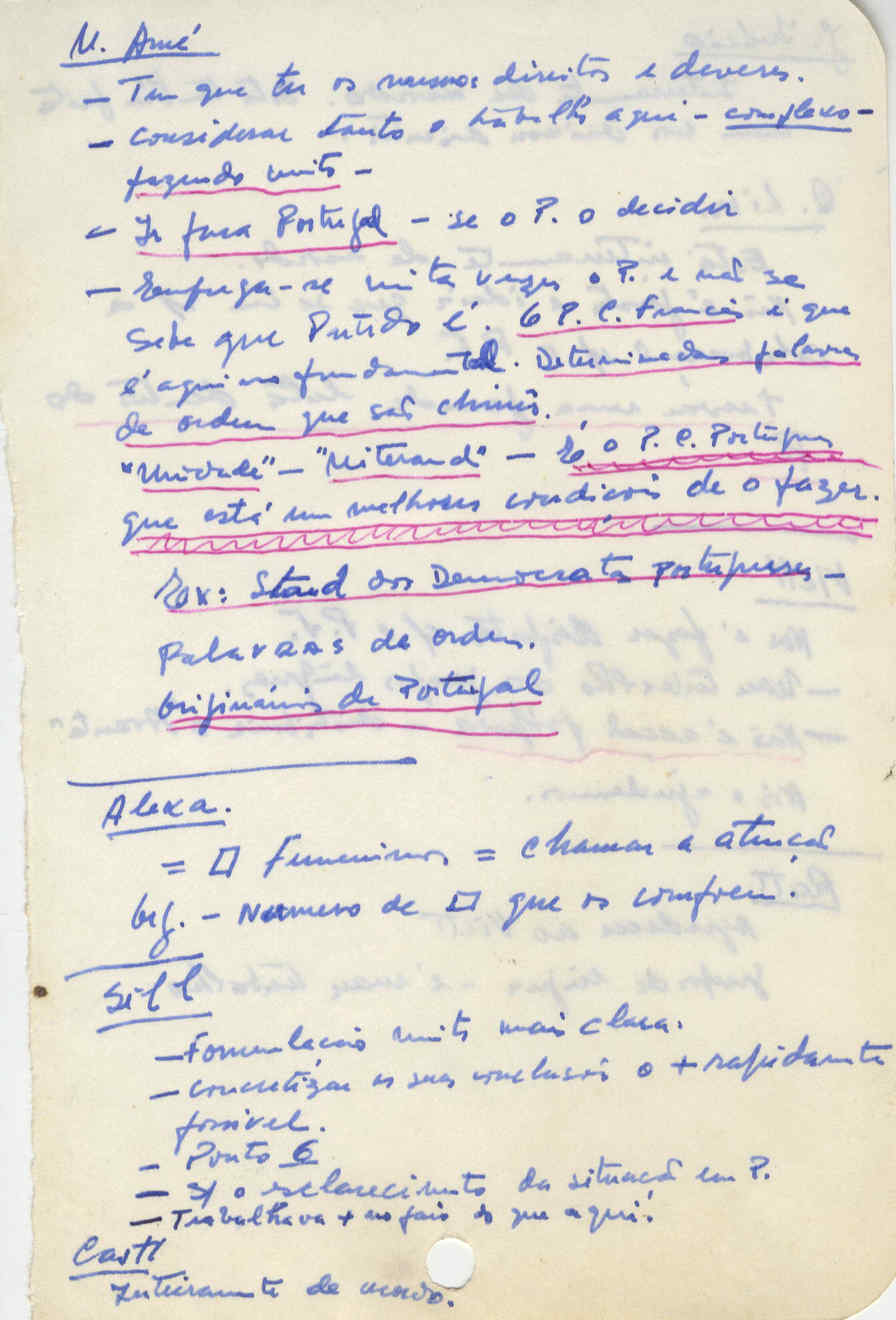 M. Amé
- Tem que ter os mesmos direitos e deveres.
- Considerar tanto o trabalho aqui - complexo -
fazendo muito -
- Ir para Portugal - se o P. o decidir
- Emprega-se muita vezes o P. e não se
sabe que Partido é. O P. C. Francês é que
é aqui no fundamental. Determinadas palavras
de ordem que são
"Unidade" - "Miterand" - É o P. C. Português
que está em melhores condicois de o fazer.
Ex: Stand dos Democratas portugueses -
Palavras de ordem.
Originários de Portugal
Alexa.
= □ Femeninos = chamar a atenção
Org. - Número de □ que os compõem.
Sill
- Formulação muito mais clara.
- Concretizar as suas conclusões o + rapidamente
possível.
- Ponto 6
- S/ o esclarecimento da situação em P.
- Trabalhava + no país do que aqui.
Castl
Inteiramente de acordo.